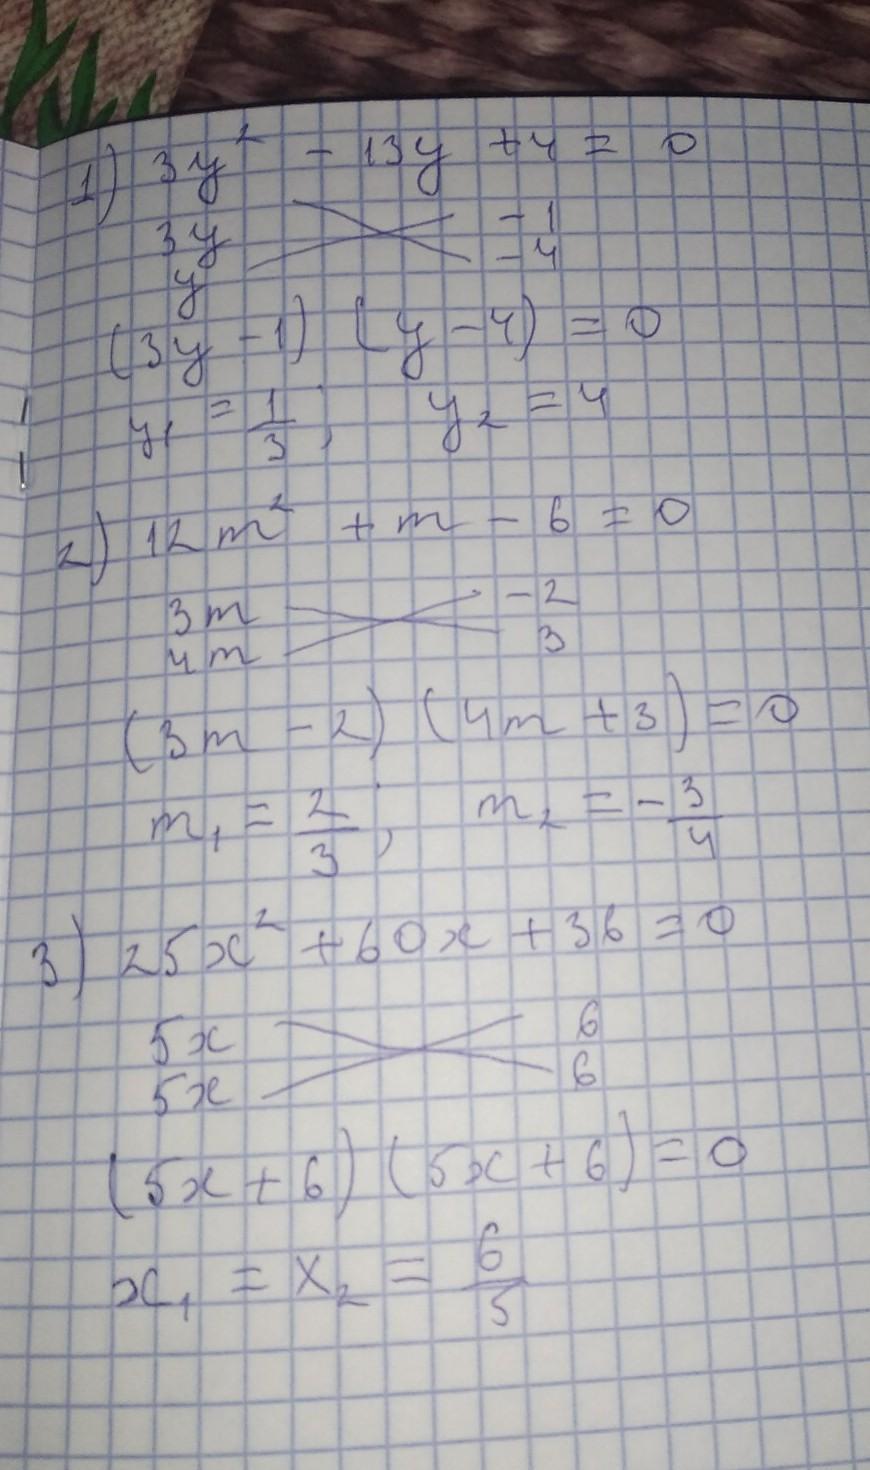 1) 3y² - 13y + 4 = 0
3y -1
y -4
(3y - 1) (y - 4) = 0
y₁ = 1/3; y₂ = 4
2) 12m² + m - 6 = 0
3m -2
4m 3
(3m - 2) (4m + 3) = 0
m₁ = 2/3; m₂ = -3/4
3) 25x² + 60x + 36 = 0
5x 6
5x 6
(5x + 6) (5x + 6) = 0
x₁ = x₂ = 6/5